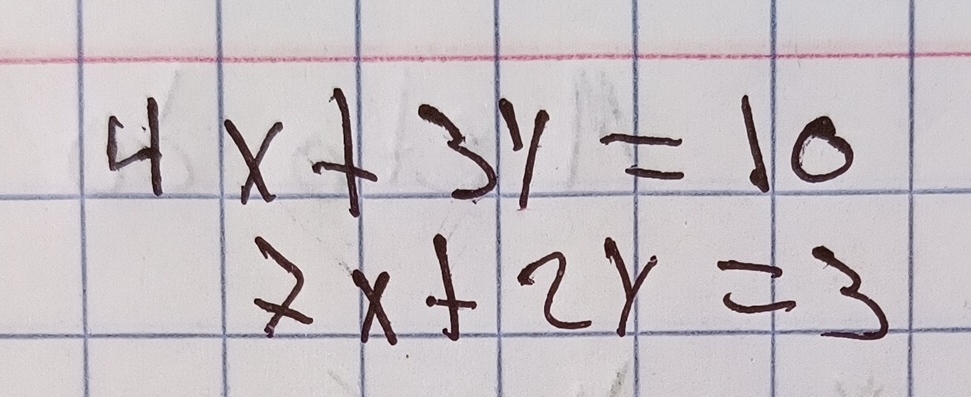 4x+3y=10
7x+2y=3